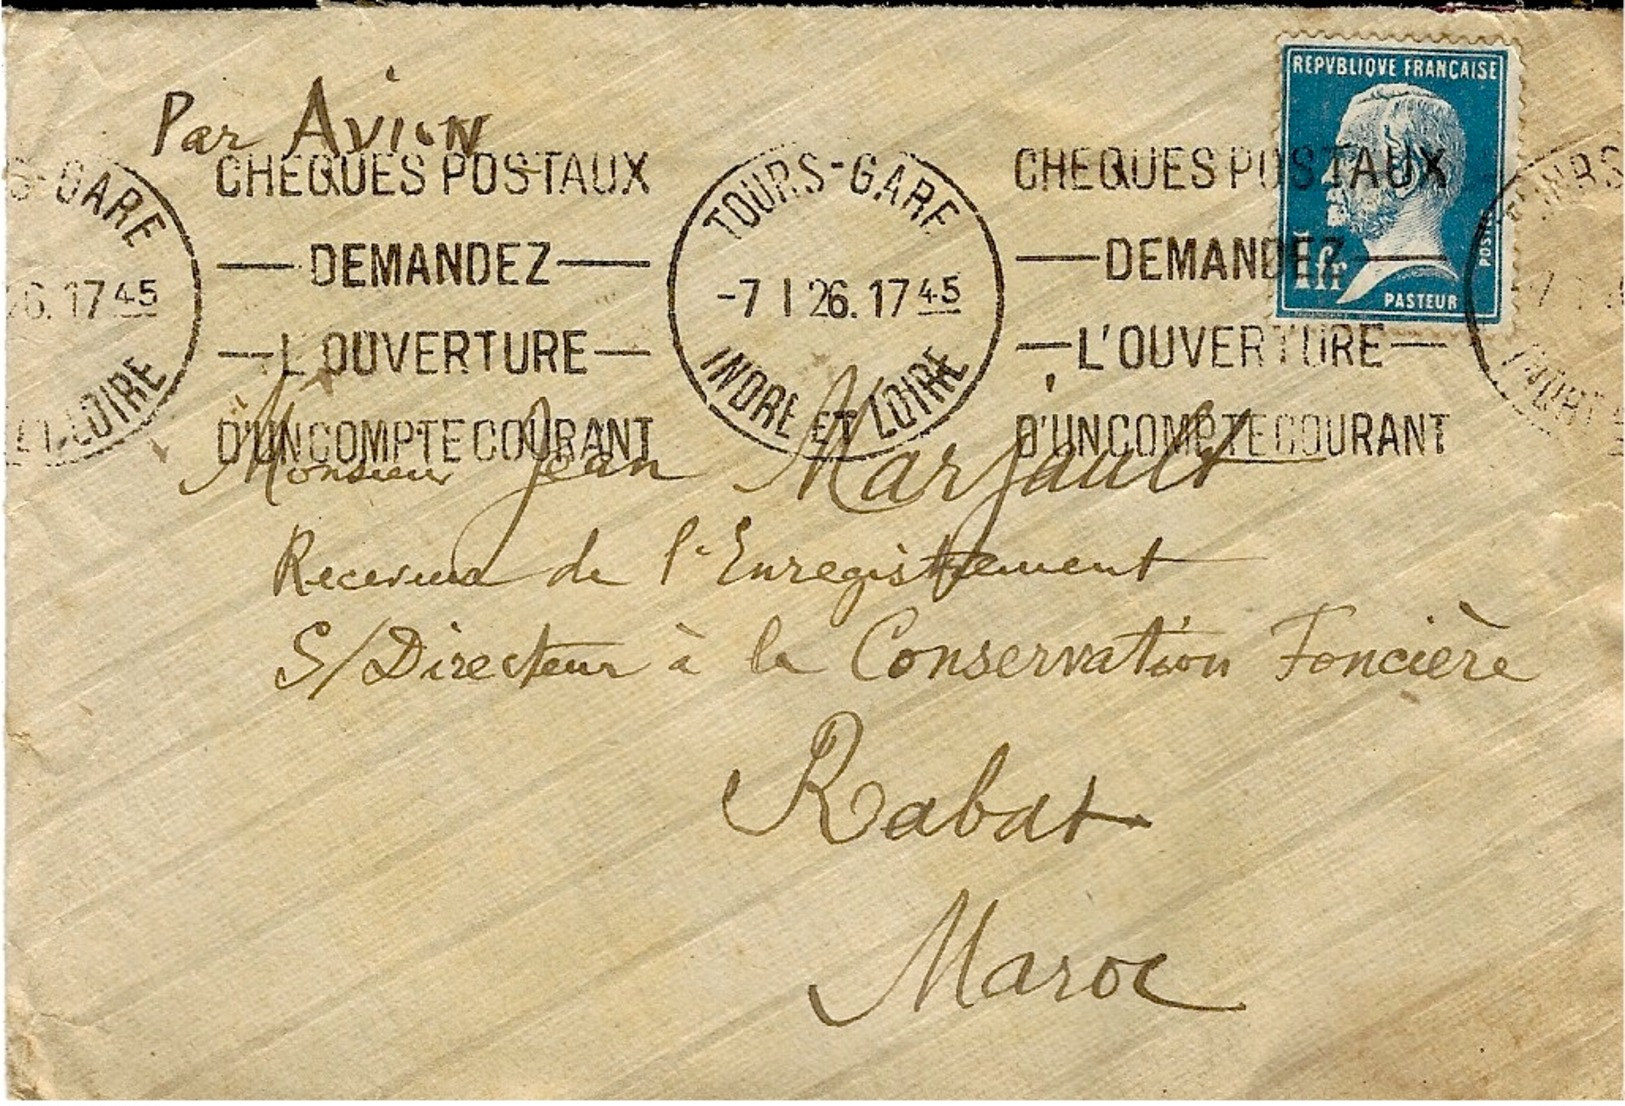 Par Avion
REPVBLIQVE FRANCAISE
1fr
POSTES
PASTEUR
S-GARE
26. 17 45
ET LOIRE
CHEQUES POSTAUX
DEMANDEZ
L'OUVERTURE
D'UN COMPTE COURANT
TOURS-GARE
-7 I 26. 17 45
INDRE ET LOIRE
CHEQUES POSTAUX
DEMANDEZ
L'OUVERTURE
D'UN COMPTE COURANT
TOURS
-7 I
INDRE
Monsieur Jean Marjault
Receveur de l'Enregistrement
S/Directeur à la Conservation Foncière
Rabat
Maroc